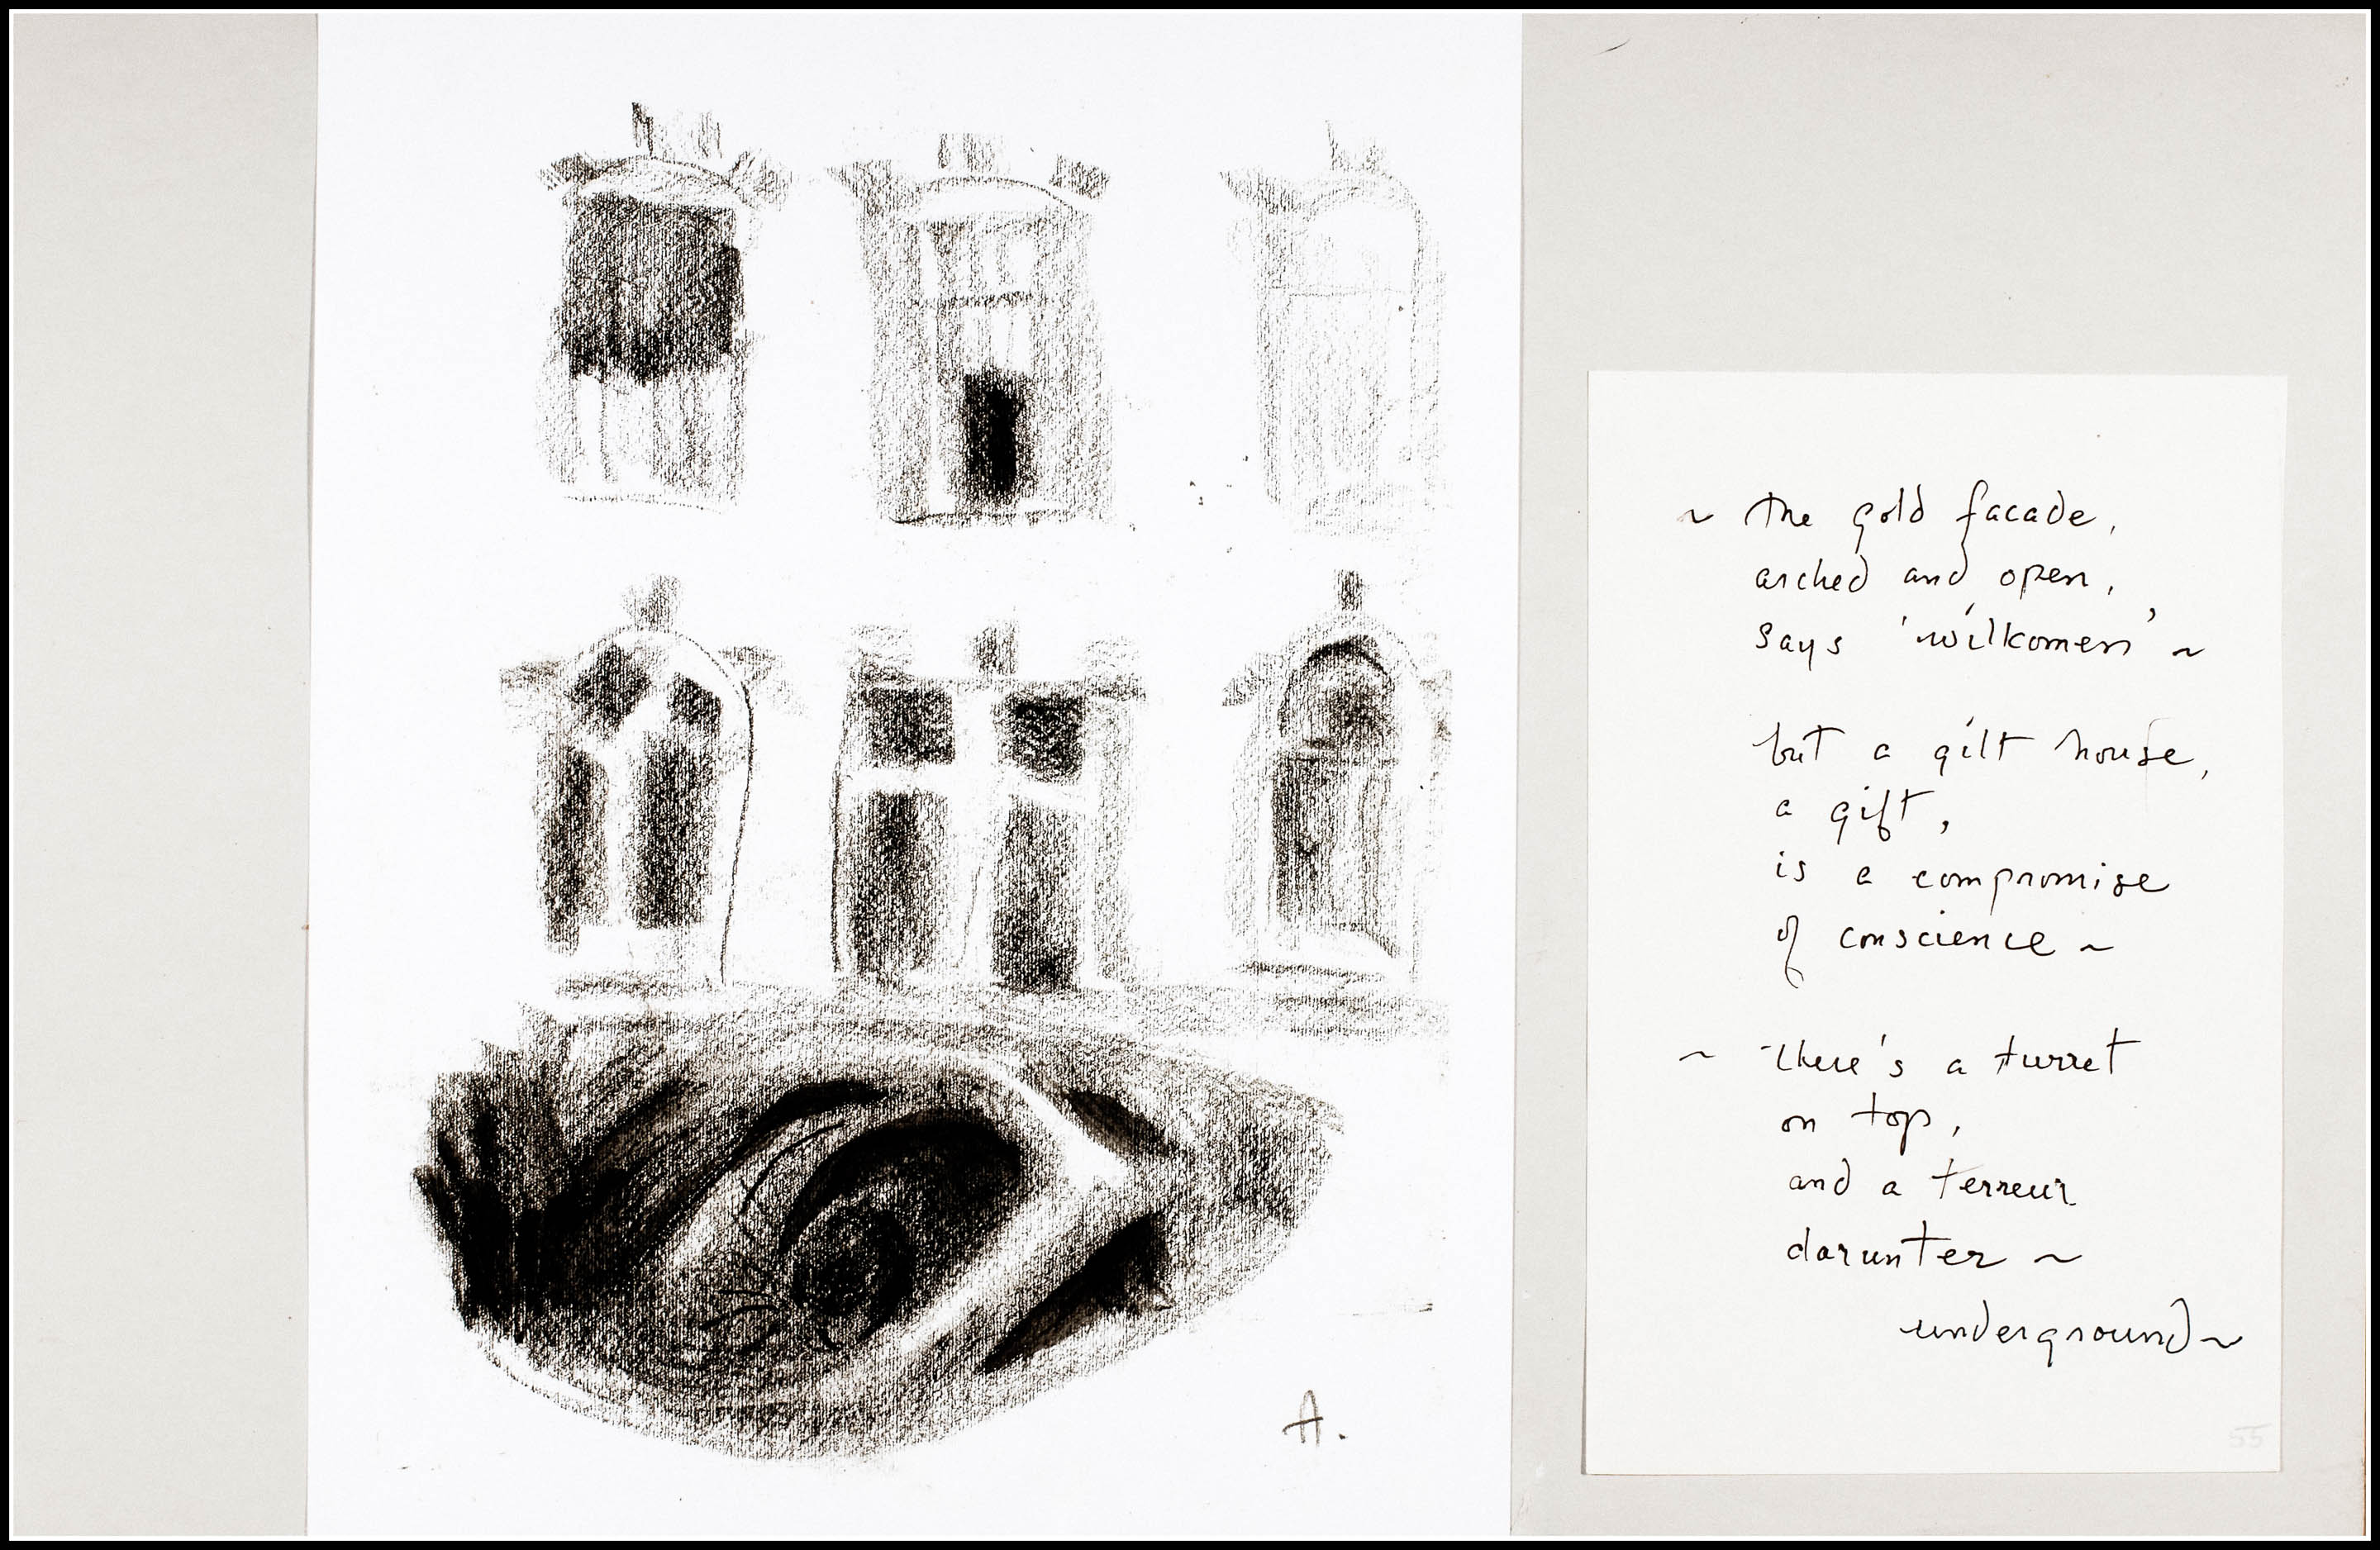 A.
~ The gold facade,
arched and open,
says 'wilkomen' ~
but a gilt house,
a gift,
is a compromise
of conscience ~
~ there's a turret
on top,
and a terreur
darunter ~
underground ~
55